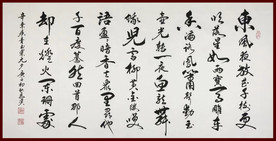 東風夜放花千樹更
吹落星如雨寶馬雕車
香滿路鳳簫聲動玉
壺光轉一夜魚龍舞
蛾兒雪柳黃金縷笑
語盈盈暗香去衆裏尋他
千百度驀然回首那人
却在燈火闌珊處
辛棄疾青玉案元夕